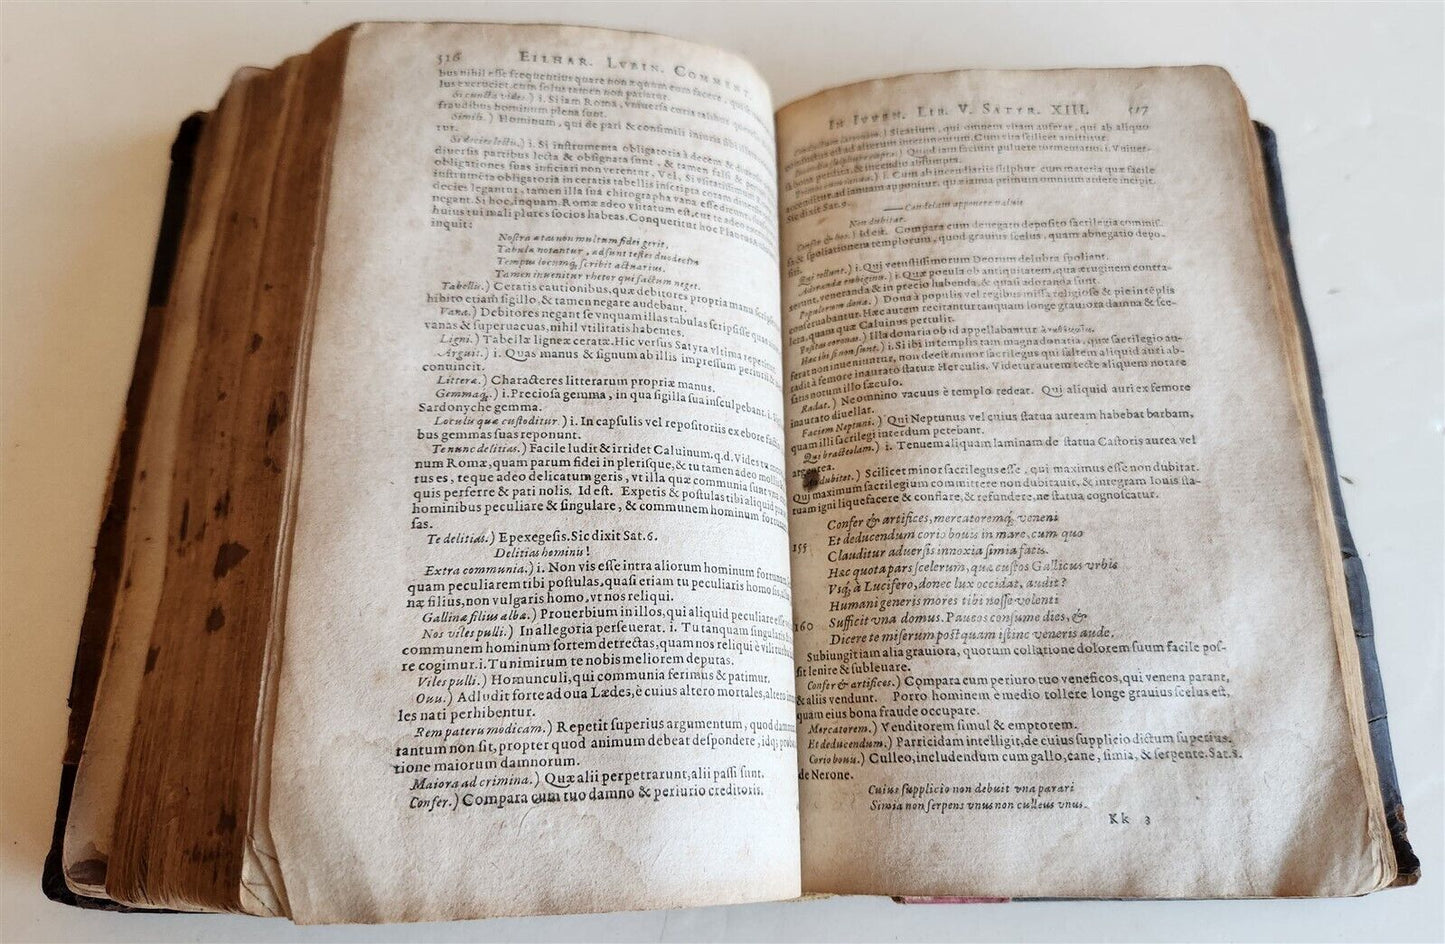 516 EILHAR. LVBIN. COMMENT.
bus nihil esse frequentius quare non æquum eum facere, qui
lus exeruciet, cum solus tamen non patiatur.
Si cuncta vides.) i. Si iam Roma, vniuersa curia talibus
fraudibus hominum plena sunt.
Simili.) Hominum, qui de pari & consimili iniuria
tur.
Si decies lectis.) i. Si instrumenta obligatoria à decem &
diuersis partibus lecta & obsignata sunt, & tamen falsi &
obligationes suas inficiari non verentur. Vel, Si
instrumẽta obligatoria in ceratis tabellis inscripta coram
decies legantur, tamen illa sua chirographa vana esse
negant. Si hoc, inquam, Romæ adeo vsitatum est, cur te adeo
huius tui mali plures socios habeas. Conqueritur hoc Plautus
inquit:
Nostra ætas non multum fidei gerit,
Tabulæ notantur, adsunt testes duodecim
Tempus locumq́, scribit actuarius.
Tamen inuenitur rhetor qui factum neget.
Tabellis.) Ceratis cautionibus, quæ debitores propria manu
hibito etiam sigillo, & tamen negare audebant.
Vana.) Debitores negant se vnquam illas tabulas scripsisse
vanas & superuacuas, nihil vtilitatis habentes.
Ligni.) Tabellæ ligneæ ceratæ. Hic versus Satyra vltima repetitur.
Arguit.) i. Quas manus & signum ab illis impressum periurii
conuincit.
Littera.) Characteres litterarum propriæ manus.
Gemmaq́.) i. Preciosa gemma, in qua sigilla sua insculpebant. i.
Sardonyche gemma.
Loculis quæ custoditur.) i. In capsulis vel repositoriis ex ebore
bus gemmas suas reponunt.
Te nunc delitias.) Facile ludit & irridet Caluinum. q.d. Vides tu
num Romæ, quam parum fidei in plerisque, & tu tamen adeo
tus es, teque adeo delicatum geris, vt illa quæ communia sunt
quis perferre & pati nolis. Id est. Expetis & postulas tibi aliquid
hominibus peculiare & singulare, & communem hominum
sas.
Te delitias.) Epexegesis. Sic dixit Sat. 6.
Delitias hominis!
Extra communia.) i. Non vis esse intra aliorum hominum
quam peculiarem tibi postulas, quasi etiam tu peculiaris homo
næ filius, non vulgaris homo, vt nos reliqui.
Gallinæ filius albæ.) Prouerbium in illos, qui aliquid peculiare
Nos viles pulli.) In allegoria perseuerat. i. Tu tanquam singularis
communem hominum sortem detrectas, quam nos reliqui è vili
re cogimur. i. Tu nimirum te nobis meliorem deputas.
Viles pulli.) Homunculi, qui communia ferimus & patimur.
Ouis.) Adludit forte ad oua Lædes, è cuius altero mortales, altero
les nati perhibentur.
Rem pateris modicam.) Repetit superius argumentum, quod
tantum non sit, propter quod animum debeat despondere, idq́;
tione maiorum damnorum.
Maiora ad crimina.) Quæ alii perpetrarunt, alii passi sunt.
Confer.) Compara cum tuo damno & periurio creditoris.
IN IVVEN. LIB. V. SATYR. XIII. 517
Conductum latronem.) Sicarium, qui omnem vitam auferat, qui ab aliquo
conductus est ad alterum interimendum. Cum vita scilicet amittitur.
sulphure cœpta.) Quod iam faciunt puluere tormentario. i. Vniuer-
sa bona perdita, & incendio absumpta.
i. Cum ab incendiariis sulphur cum materia quæ facile
accenditur, ad ianuam apponitur, quæ ianua primum omnium ardere incipit.
Sic dixit Sat. 9.
Candelam apponere valuis
Non dubitat.
Confer & hos.) Id est. Compara cum denegato deposito sacrilegia commis-
sa, & spoliationem templorum, quod grauius scelus, quam abnegatio depo-
siti.
Qui tollunt.) i. Qui vetustissimorum Deorum delubra spoliant.
Adoranda rubigine.) i. Quæ pocula ob antiquitatem, quæ æruginem contra-
xerunt, veneranda & in precio habenda, & quasi adoranda sunt.
Populorum dona.) Dona à populis vel regibus missa religiose & pie in tẽplis
conseruabantur. Hæc autem recitantur tanquam longe grauiora damna & sce-
lera, quam quæ Caluinus pertulit.
Positas coronas.) Illa donaria ob id appellabantur
Hæc ibi si non sunt.) i. Si ibi in templis tam magna donaria, quæ sacrilegio au-
ferat non inueniuntur, non deest minor sacrilegus qui saltem aliquid auri ab-
radit à femore inaurato statuæ Herculis. Videtur autem tecte aliquem notare
satis notum illo sæculo.
Radat.) Ne omnino vacuus è templo redeat. Qui aliquid auri ex femore
inaurato diuellat.
Faciem Neptuni.) Qui Neptunus vel cuius statua auream habebat barbam,
quam illi sacrilegi interdum petebant.
Qui bracteolam.) i. Tenuem aliquam laminam de statua Castoris aurea vel
argentea.
An dubitat.) Scilicet minor sacrilegus esse, qui maximus esse non dubitat.
Qui maximum sacrilegium committere non dubitauit, & integram Iouis sta-
tuam igni liquefacere & conflare, & refundere, ne statua cognoscatur.
Confer & artifices, mercatoremq́, veneni
155 Et deducendum corio bouis in mare, cum quo
Clauditur aduersis innoxia simia fatis.
Hæc quota pars scelerum, quæ custos Gallicus vrbis
Vsq́, à Lucifero, donec lux occidat, audit?
Humani generis mores tibi nosse volenti
160 Sufficit vna domus. Paucos consume dies, &
Dicere te miserum postquam istinc veneris aude.
Subiungit iam alia grauiora, quorum collatione dolorem suum facile pos-
sit lenire & subleuare.
Confer & artifices.) Compara cum periuro tuo veneficos, qui venena parant,
& aliis vendunt. Porro hominem è medio tollere longe grauius scelus est,
quam eius bona fraude occupare.
Mercatorem.) Venditorem simul & emptorem.
Et deducendum.) Parricidam intelligit, de cuius supplicio dictum superius.
Corio bouis.) Culleo, includendum cum gallo, cane, simia, & serpente. Sat. 8.
de Nerone.
Cuius supplicio non debuit vna parari
Simia non serpens vnus non culleus vnus.
Kk 3